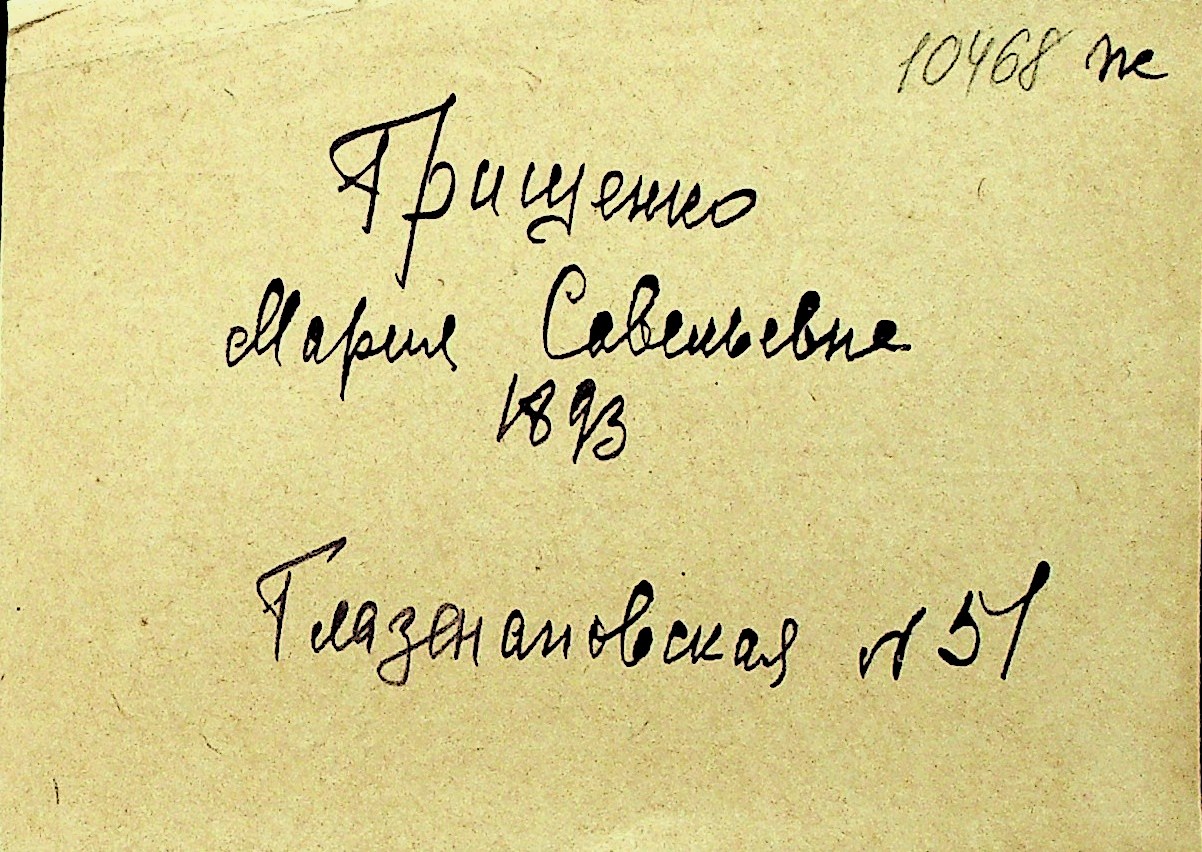 10468 ж
Грищенко
Мария Савельевна
1893
Глазенаповская № 51